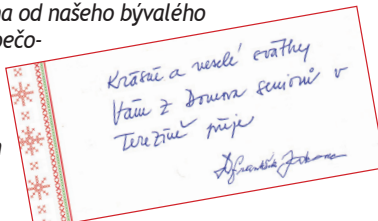 na od našeho bývalého
pečo-
Krásné a veselé svátky
Vám z Domova seniorů v
Terezíně přeje
František